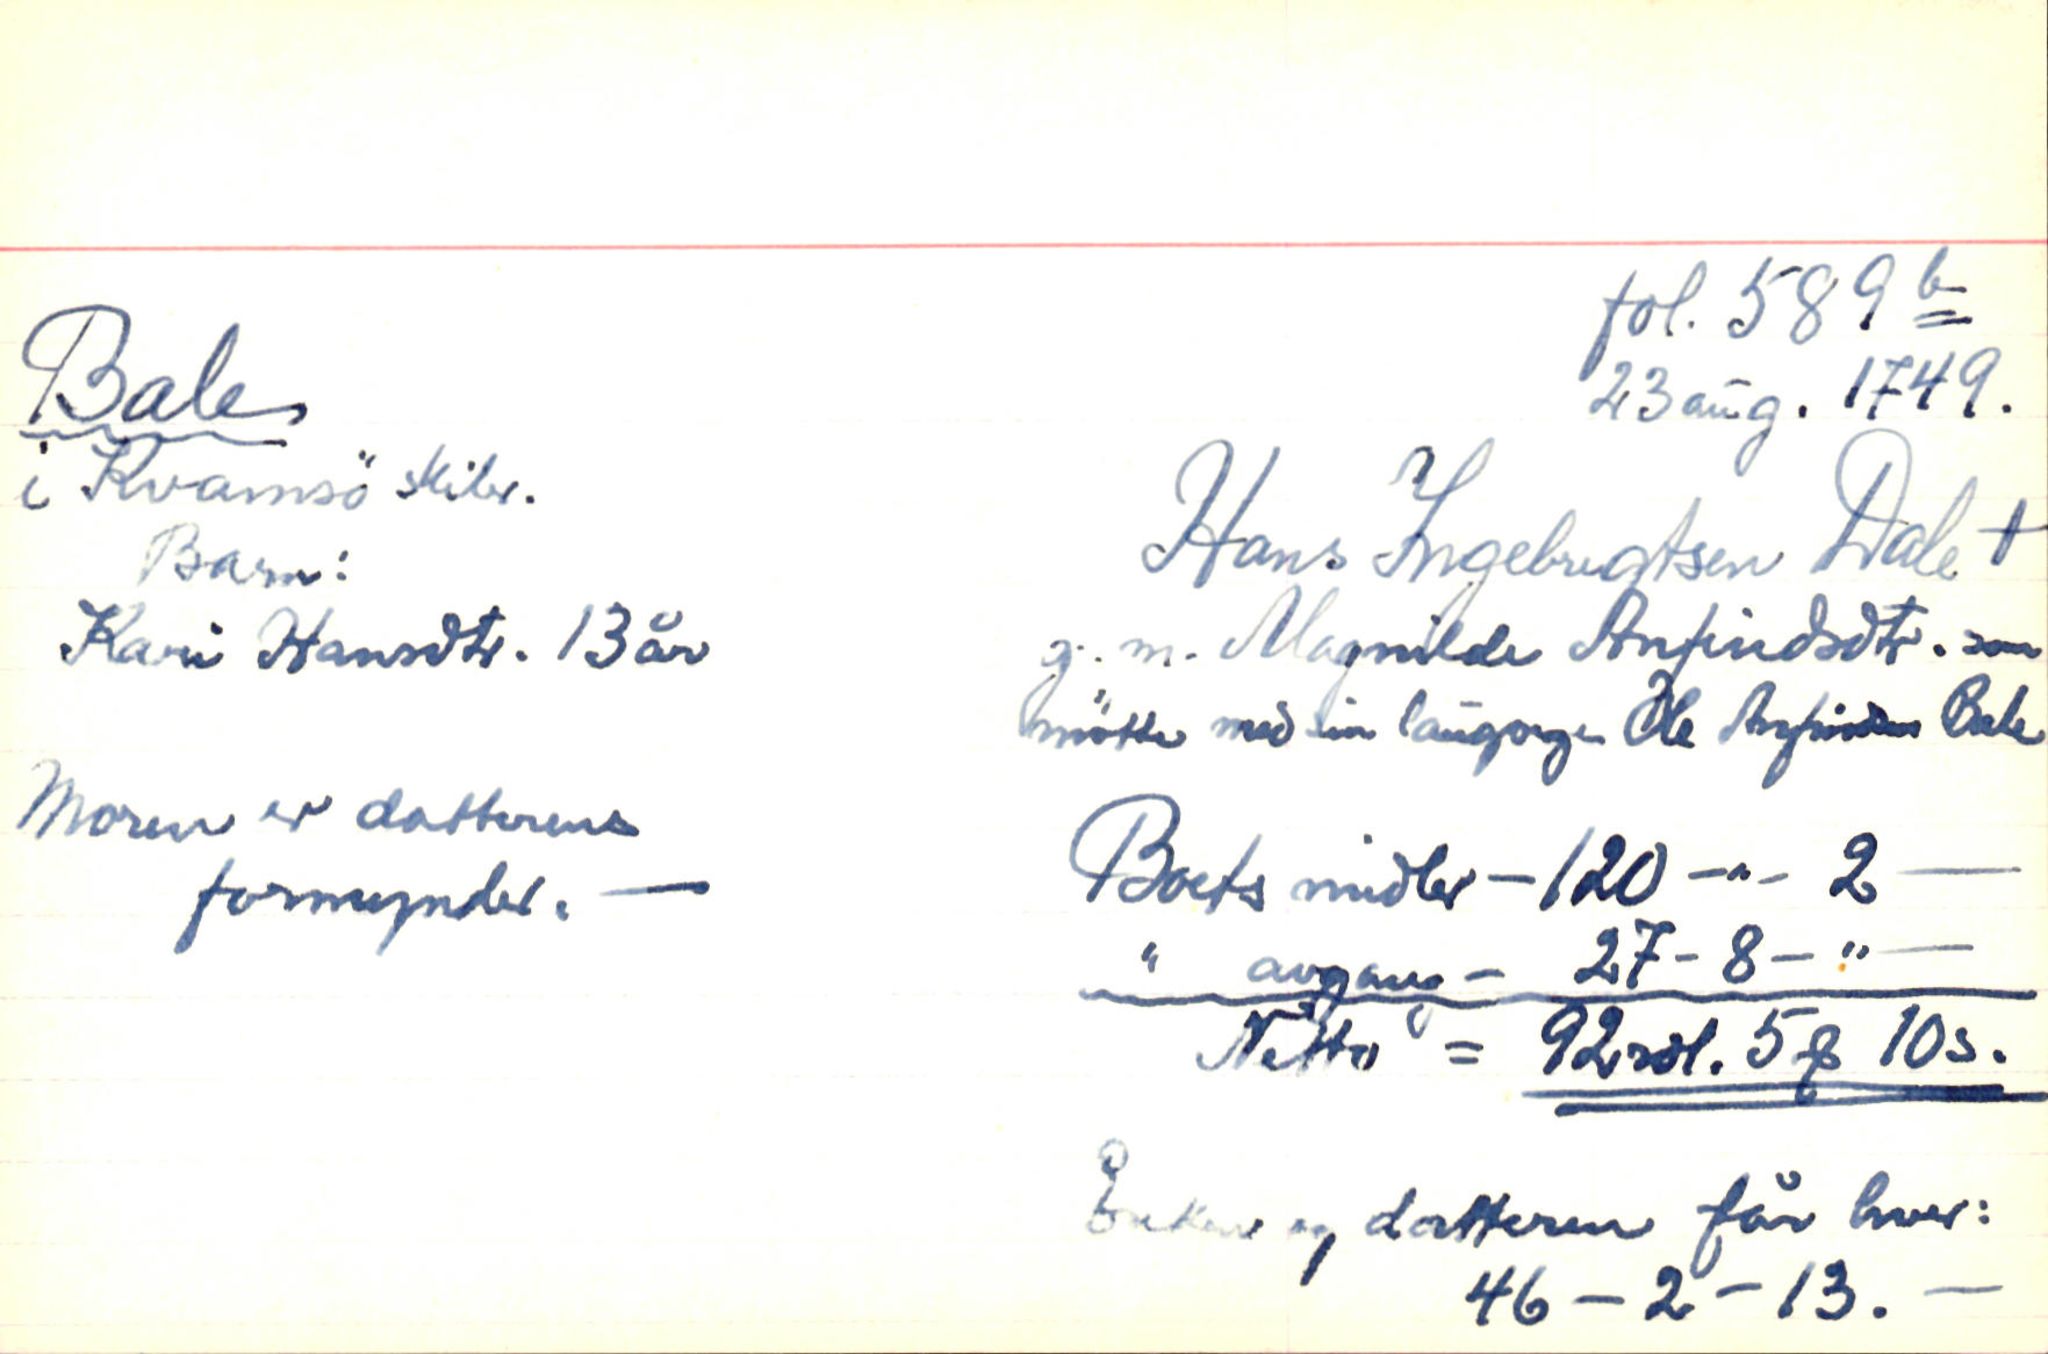 fol. 589 b
23 aug. 1749.
Bale
i Kvamsö skibr.
Barn:
Kari Hansdtr. 13 år
Moren er datterens
formynder. —
Hans Ingebrigtsen Dale †
g. m. Magnilde Anfindsdtr. som
mötte med sin laugverge Ole Anfindsen Bale
Boets midler — 120 – " – 2 —
" avgang – 27 – 8 – " —
Netto = 92 rdl. 5 ß 10 s.
Enken og datteren får hver:
46 – 2 – 13. —